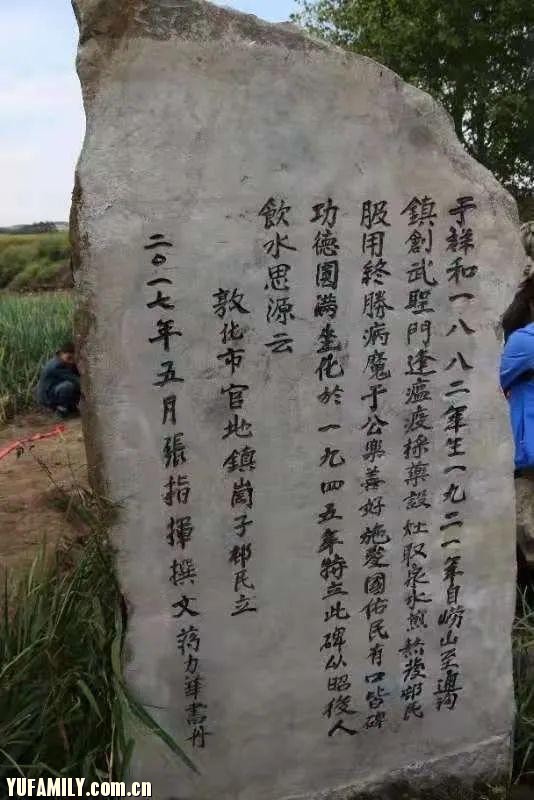 于祥和一八八二年生一九二一年自崂山至通沟
鎮創武聖門逢瘟疫採藥設灶取泉水煎熬後邨民
服用終勝病魔于公樂善好施愛國佑民有口皆碑
功德圓滿坐化於一九四五年特立此碑以昭後人
飲水思源云
敦化市官地鎮崗子邨民立
二〇一七年五月張指揮撰文蒋力華書丹
YUFAMILY.com.cn